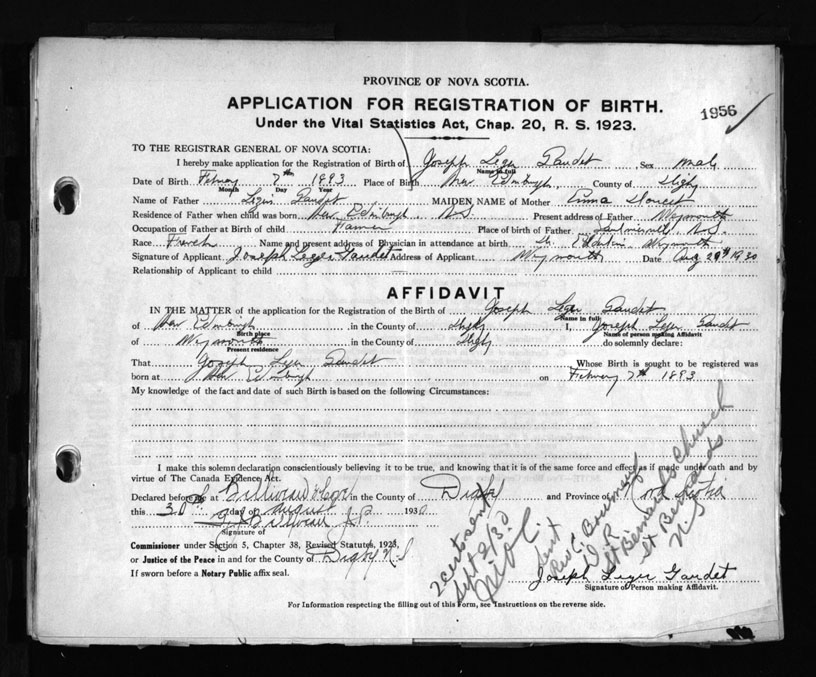 PROVINCE OF NOVA SCOTIA.
APPLICATION FOR REGISTRATION OF BIRTH.
1956
Under the Vital Statistics Act, Chap. 20, R. S. 1923.
TO THE REGISTRAR GENERAL OF NOVA SCOTIA:
I hereby make application for the Registration of Birth of Joseph Leger Gaudet Sex Male
Name in full
Date of Birth 7th 1893 Place of Birth New Edinburgh County of Digby
Month Day Year
Name of Father Gaudet MAIDEN NAME of Mother Emma Doucet
Residence of Father when child was born New Edinburgh N.S. Present address of Father Weymouth
Occupation of Father at Birth of child Farmer Place of birth of Father N.S.
Race French Name and present address of Physician in attendance at birth Dr. Weymouth
Signature of Applicant Joseph Leger Gaudet Address of Applicant Weymouth Date Aug 29th 1930
Relationship of Applicant to child
AFFIDAVIT
IN THE MATTER of the application for the Registration of the Birth of Joseph Leger Gaudet
Name in full
of New Edinburgh in the County of Digby I, Joseph Leger Gaudet
Birth place Name of person making Affidavit
of Weymouth in the County of Digby do solemnly declare:
Present residence
That Joseph Leger Gaudet Whose Birth is sought to be registered was
born at New Edinburgh on February 7th 1893
My knowledge of the fact and date of such Birth is based on the following Circumstances:
I make this solemn declaration conscientiously believing it to be true, and knowing that it is of the same force and effect as if made under oath and by
virtue of The Canada Evidence Act.
Declared before me at in the County of Digby and Province of Nova Scotia
this 30th day of August 1930
J.P.
Signature of
Commissioner under Section 5, Chapter 38, Revised Statutes, 1923,
or Justice of the Peace in and for the County of Digby N.S
If sworn before a Notary Public affix seal.
2 cert sent
Sept 2/30
St Bernards Church
St Bernards
N S
Joseph Leger Gaudet
Signature of Person making Affidavit.
For Information respecting the filling out of this Form, see Instructions on the reverse side.